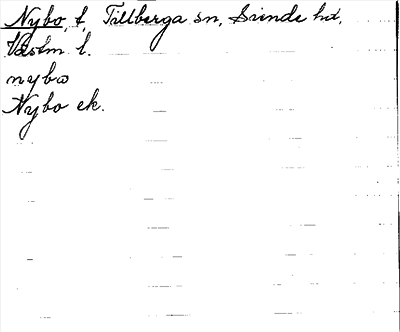 Nybo, t, Tillberga sn, Siende hd,
Västm l.
nybω
Nybo ek.